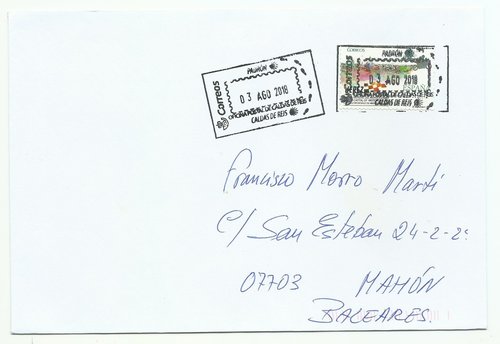 PADRÓN
Correos
03 AGO 2018
CALDAS DE REIS
CORREOS
PADRÓN
03 AGO 2018
ESPAÑA
CALDAS DE REIS
Francisco Morro Martí
C/ San Esteban 24-2-2º
07703 MAHÓN
BALEARES.